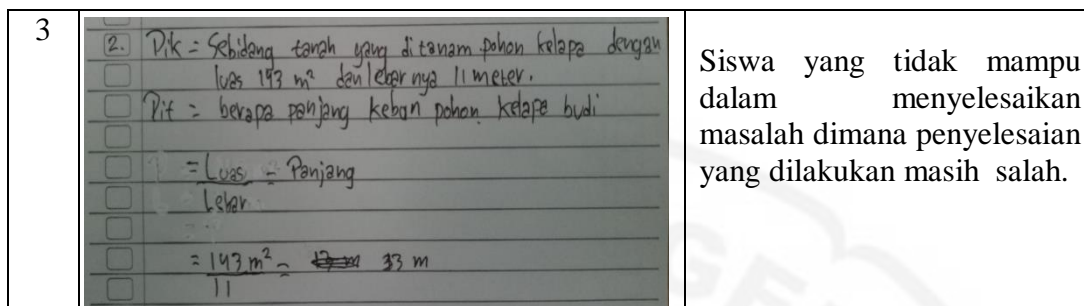 3
2. Dik = Sebidang tanah yang ditanam pohon kelapa dengan
luas 143 m² dan lebar nya 11 meter.
Dit = berapa panjang kebun pohon kelapa budi
= Luas = Panjang
Lebar
= 143 m² = 33 m
11
Siswa yang tidak mampu
dalam menyelesaikan
masalah dimana penyelesaian
yang dilakukan masih salah.